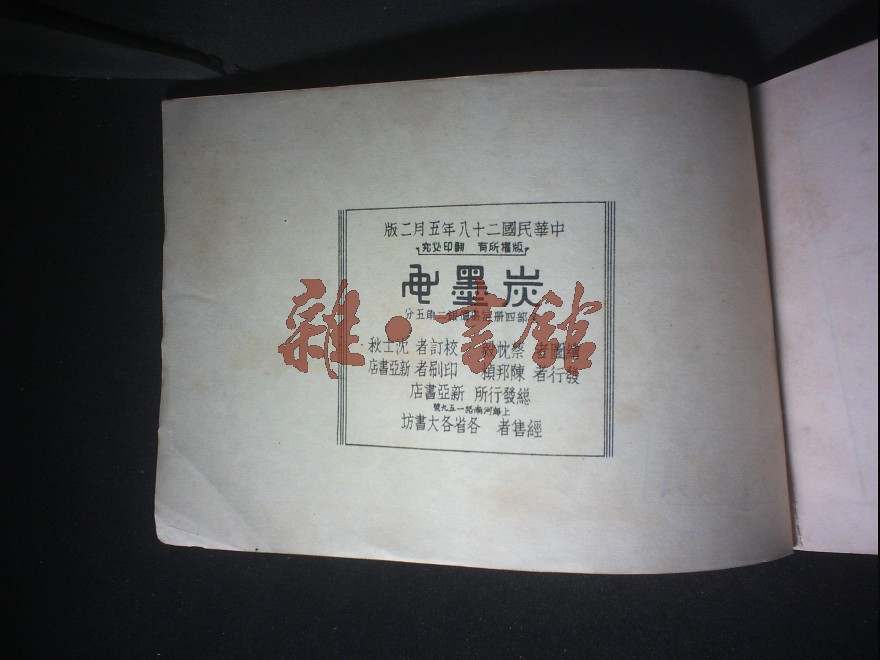 中華民國二十八年五月二版
版權所有 翻印必究
炭墨画
部四册 角五分
繪圖者 蔡忱毅 校訂者 沈士秋
發行者 陳邦楨 印刷者 新亞書店
總發行所 新亞書店
上海河南路一五九號
經售者 各省各大書坊
雜·書館